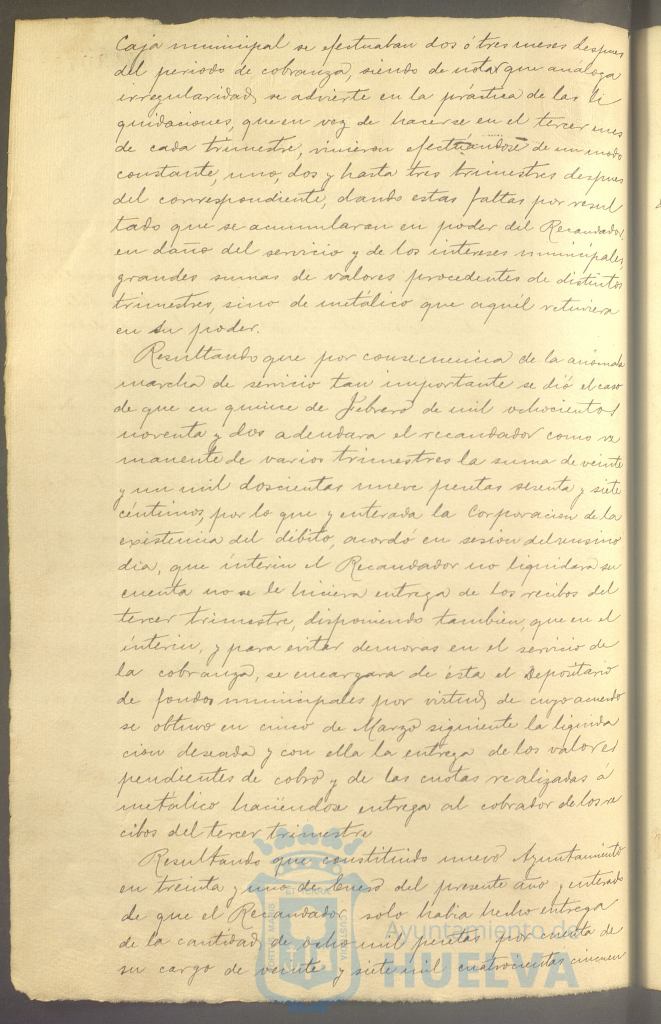 Caja municipal se efectuaban dos ó tres meses despues
del periodo de cobranza, siendo de notar que análoga
irregularidad, se advierte en la práctica de las li
quidaciones, que en vez de hacerse en el tercer mes
de cada trimestre, vinieron efectuandose de un modo
constante, uno, dos y hasta tres trimestres despues
del correspondiente, dando estas faltas por resul
tado que se acumularan en poder del Recaudador
en daño del servicio y de los intereses municipales,
grandes sumas de valores procedentes de distintos
trimestres, sino de metálico que aquél retuviera
en su poder.
Resultando que por consecuencia de la anómala
marcha de servicio tan importante se dió el caso
de que en quince de Febrero de mil ochocientos
noventa y dos adeudara el recaudador como re
manente de varios trimestres la suma de veinte
y un mil doscientas nueve pesetas sesenta y siete
céntimos, por lo que y enterada la Corporacion de la
existencia del débito, acordó en sesion del mismo
dia, que ínterin el Recaudador no liquidara su
cuenta no se le hiciera entrega de los recibos del
tercer trimestre, disponiendo tambien, que en el
ínterin, y para evitar demoras en el servicio de
la cobranza, se encargara de ésta el Depositario
de fondos municipales por virtud de cuyo acuerdo
se obtuvo en cinco de Marzo siguiente la liquida
cion deseada y con ella la entrega de los valores
pendientes de cobro y de las cuotas realizadas á
metálico haciendose entrega al cobrador de los re
cibos del tercer trimestre
Resultando que constituido nuevo Ayuntamiento
en treinta y uno de Enero del presente año y enterado
de que el Recaudador, solo habia hecho entrega
de la cantidad de ocho mil pesetas por cuenta de
su cargo de veinte y siete mil cuatrocientas cincuen
Ayuntamiento de
HUELVA